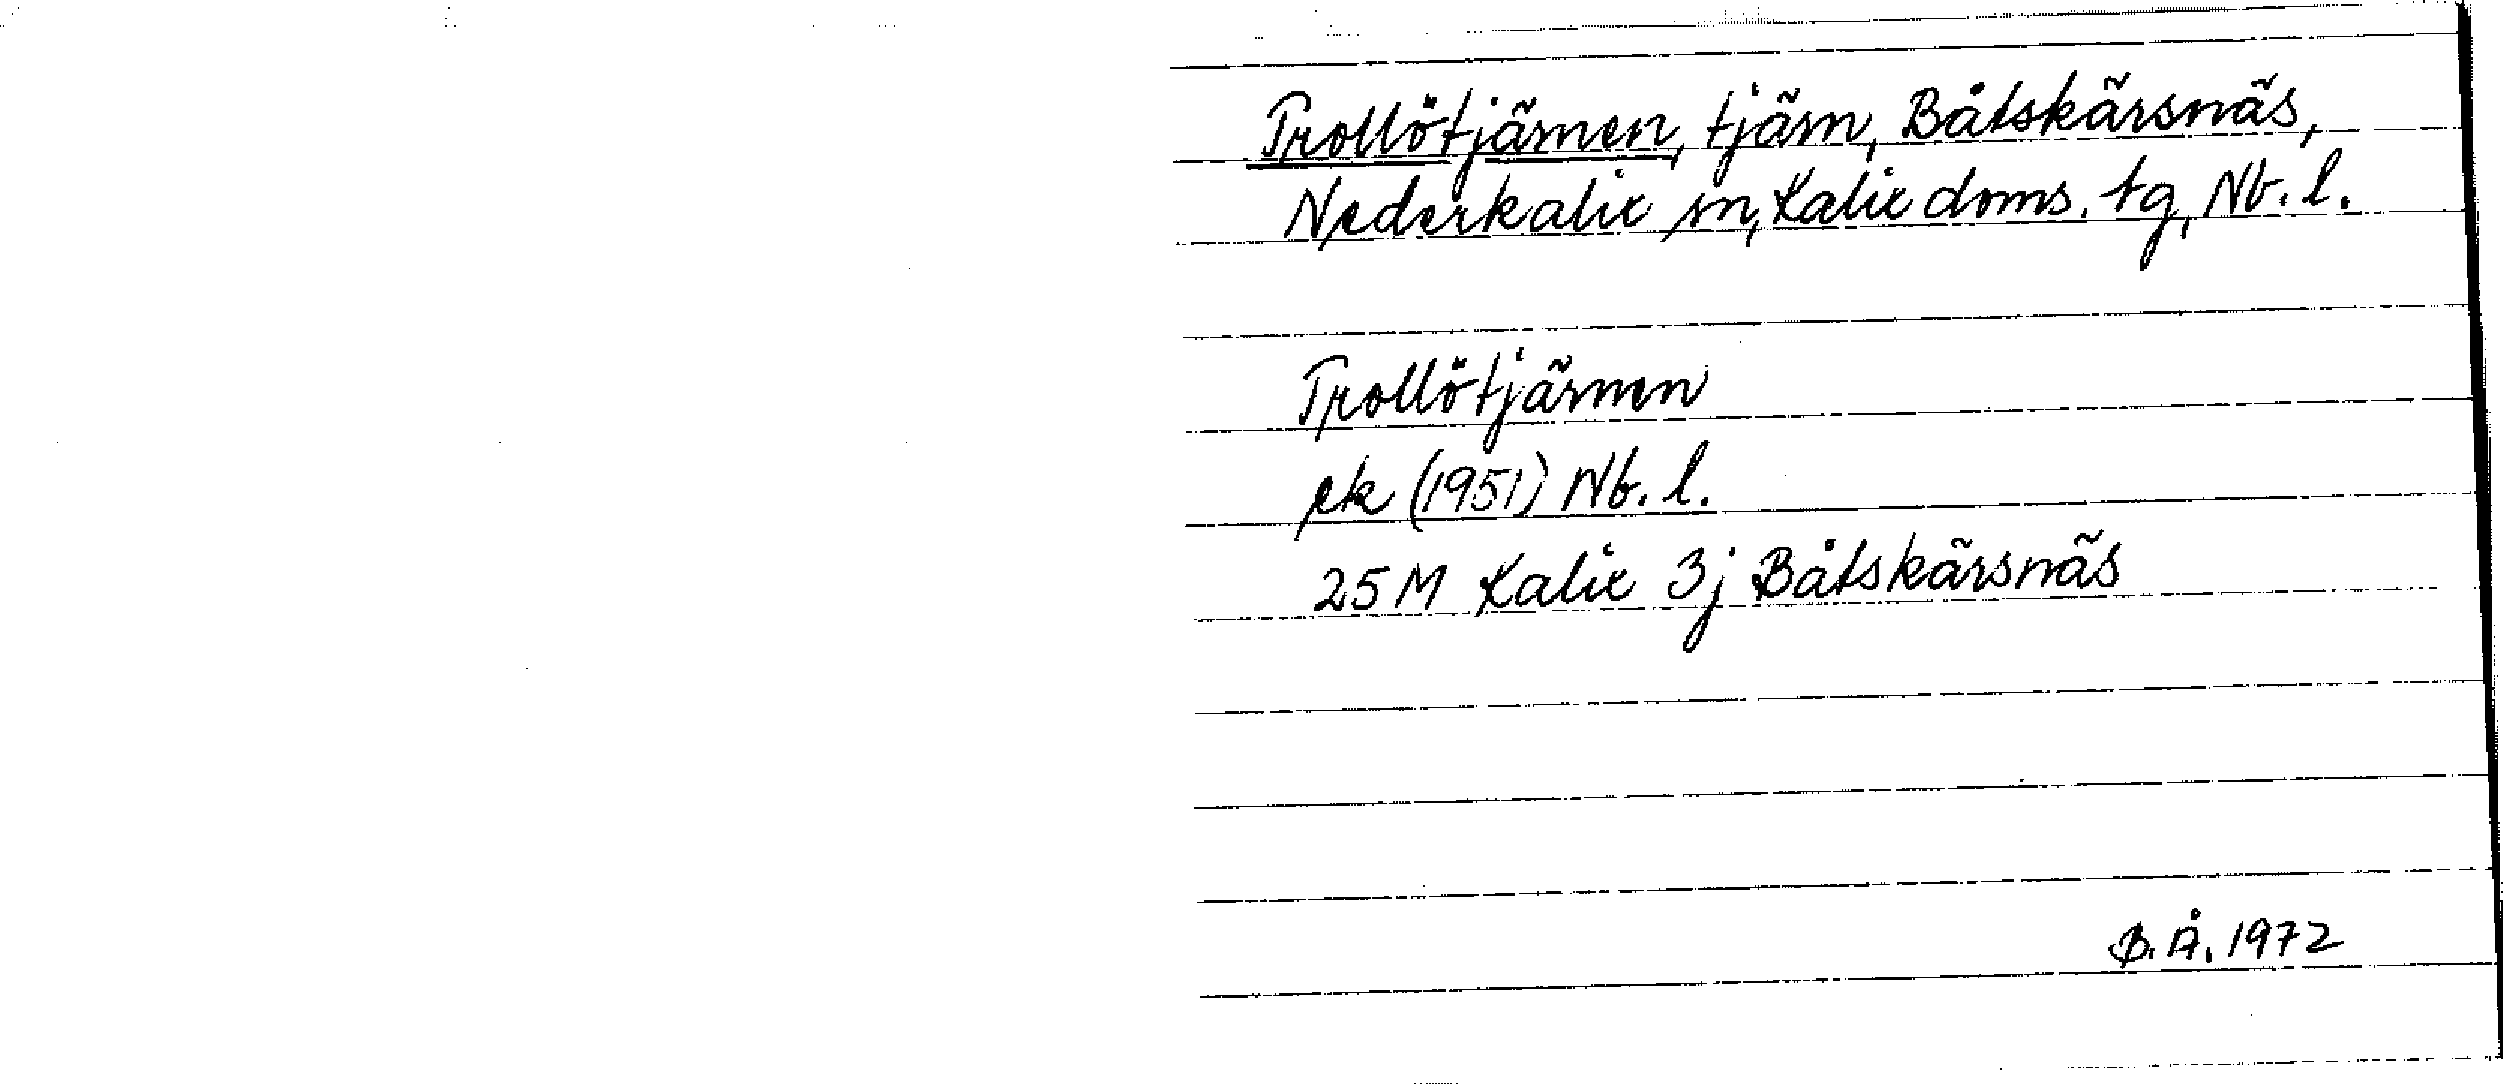 Trollötjärnen, tjärn, Båtskärsnäs,
Nederkalix sn, Kalix doms. tg, Nb. l.
Trollötjärnen
ek (1951) Nb. l.
25 M Kalix 3j Båtskärsnäs
B. Å. 1972